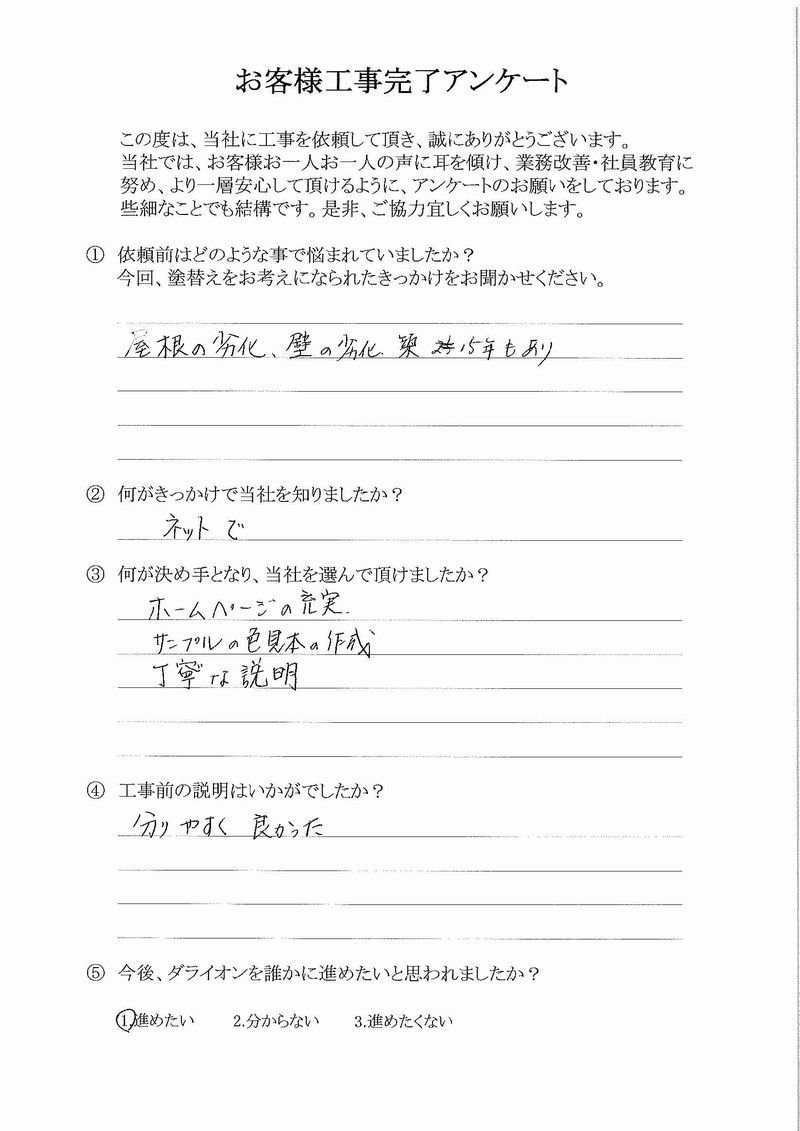 お客様工事完了アンケート
この度は、当社に工事を依頼して頂き、誠にありがとうございます。
当社では、お客様お一人お一人の声に耳を傾け、業務改善・社員教育に
努め、より一層安心して頂けるように、アンケートのお願いをしております。
些細なことでも結構です。是非、ご協力宜しくお願いします。
① 依頼前はどのような事で悩まれていましたか？
今回、塗替えをお考えになられたきっかけをお聞かせください。
屋根の劣化、壁の劣化 築 15年もあり
② 何がきっかけで当社を知りましたか？
ネットで
③ 何が決め手となり、当社を選んで頂けましたか？
ホームページの充実.
サンプルの色見本の作成
丁寧な説明
④ 工事前の説明はいかがでしたか？
分りやすく 良かった
⑤ 今後、ダライオンを誰かに進めたいと思われましたか？
1.進めたい 2.分からない 3.進めたくない